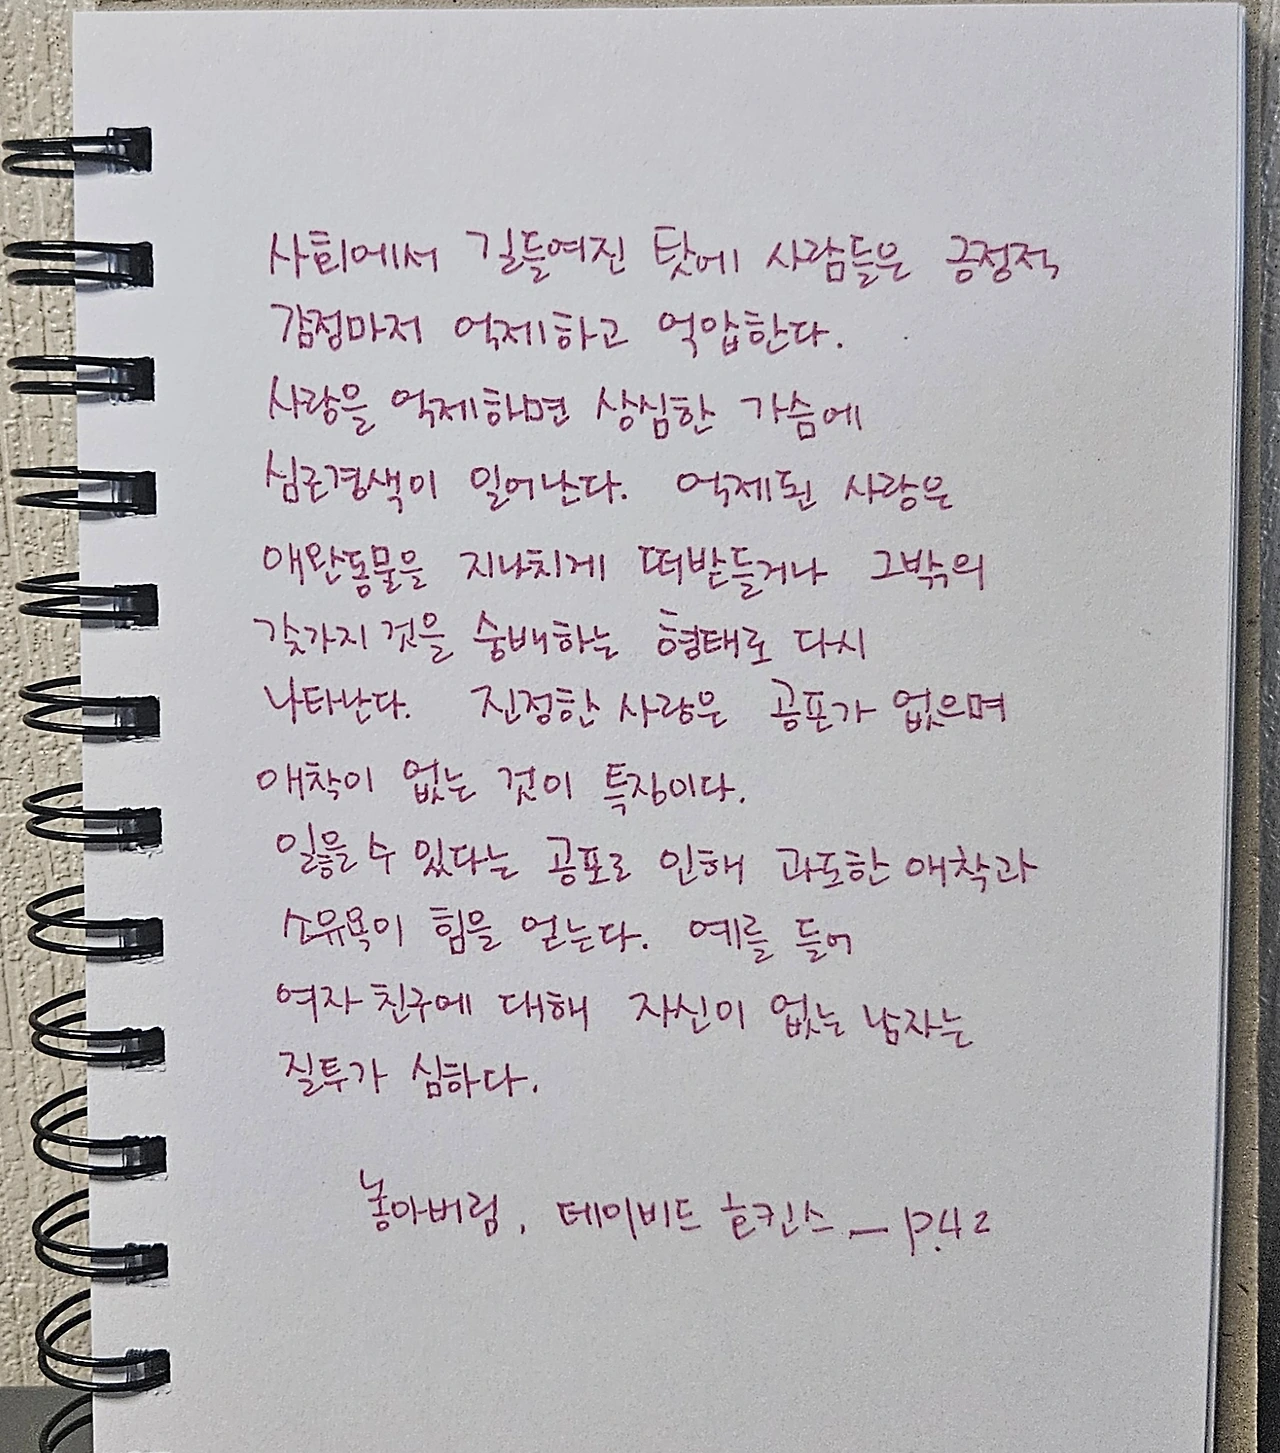 사회에서 길들여진 탓에 사람들은 긍정적
감정마저 억제하고 억압한다.
사랑을 억제하면 상심한 가슴에
심근경색이 일어난다. 억제된 사랑은
애완동물을 지나치게 떠받들거나 그밖의
갖가지 것을 숭배하는 형태로 다시
나타난다. 진정한 사랑은 공포가 없으며
애착이 없는 것이 특징이다.
잃을 수 있다는 공포로 인해 과도한 애착과
소유욕이 힘을 얻는다. 예를 들어
여자친구에 대해 자신이 없는 남자는
질투가 심하다.
놓아버림, 데이비드 호킨스 — P.42